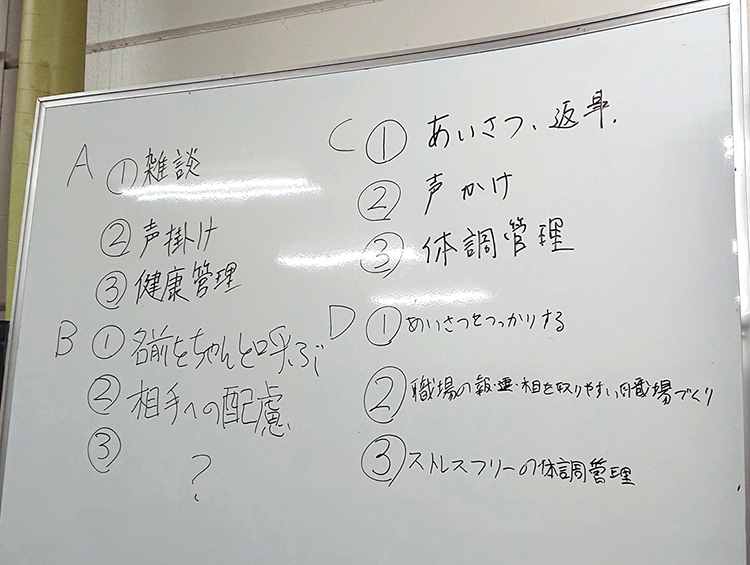 A ①雑談
②声掛け
③健康管理
B ①名前をちゃんと呼ぶ
②相手への配慮
③
?
C ①あいさつ、返事.
②声かけ
③体調管理
D ①あいさつをつっかりする
②職場の報・連・相を取りやすい職場づくり
③ストレスフリーの体調管理